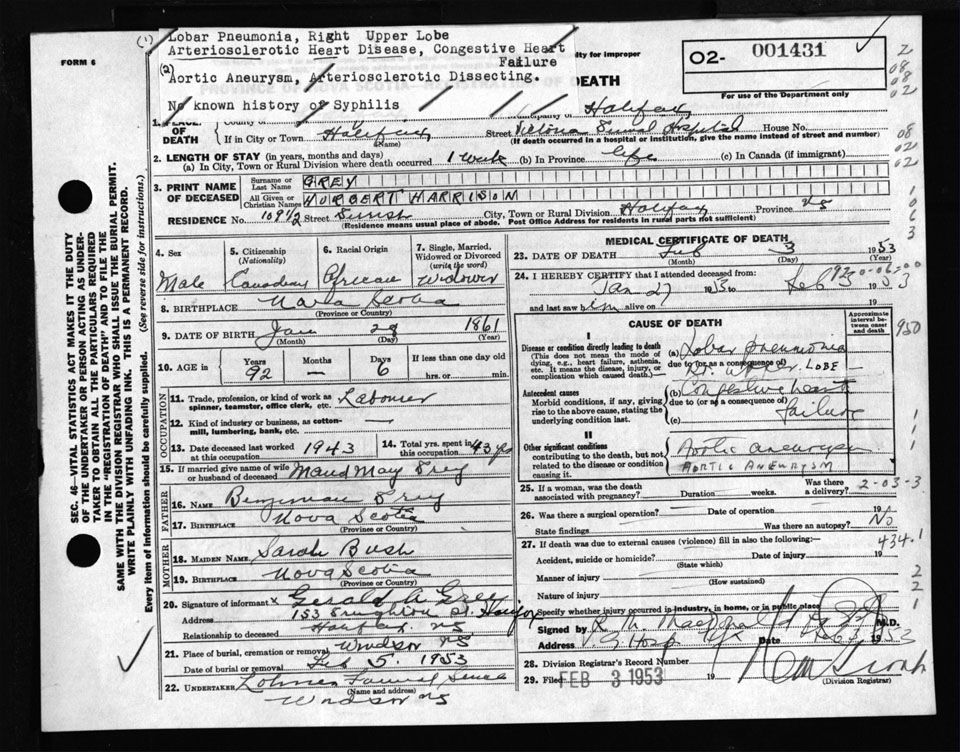 (1) Lobar Pneumonia, Right Upper Lobe
Arteriosclerotic Heart Disease, Congestive Heart
Failure
(2) Aortic Aneurysm, Arteriosclerotic Dissecting.
No known history of Syphilis
FORM 6
for improper
DEATH
O2- 001431
For use of the Department only
2
08
08
02
Municipality of Halifax
1. PLACE OF DEATH
County of
If in City or Town Halifax (Name) Street Victoria General Hospital House No.
(If death occurred in a hospital or institution, give the name instead of street and number)
08
02
02
2. LENGTH OF STAY (in years, months and days)
(a) In City, Town or Rural Division where death occurred 1 week (b) In Province life (c) In Canada (if immigrant)
3. PRINT NAME OF DECEASED
Surname or Last Name GREY
All Given or Christian Names HURBERT HARRISON
RESIDENCE No. 109 1/2 Street City, Town or Rural Division Halifax Province NS
(Residence means usual place of abode. Post Office Address for residents in rural parts not sufficient)
1
0
6
3
4. Sex Male
5. Citizenship (Nationality) Canadian
6. Racial Origin African
7. Single, Married, Widowed or Divorced (write the word) Widower
8. BIRTHPLACE Nova Scotia
(Province or Country)
9. DATE OF BIRTH Jan 28 1861
(Month) (Day) (Year)
10. AGE in Years 92 Months — Days 6 If less than one day old hrs. or min.
OCCUPATION
11. Trade, profession, or kind of work as spinner, teamster, office clerk, etc. Labourer
12. Kind of industry or business, as cotton-mill, lumbering, bank, etc. —
13. Date deceased last worked at this occupation 1943
14. Total yrs. spent in this occupation 43 yrs
15. If married give name of wife or husband of deceased Maud May Grey
FATHER
16. NAME Benjiman Grey
17. BIRTHPLACE Nova Scotia
(Province or Country)
MOTHER
18. MAIDEN NAME Sarah Bush
19. BIRTHPLACE Nova Scotia
(Province or Country)
20. Signature of informant x Gerald A Grey
Address 153 Creighton St. Halifax
Relationship to deceased Halifax NS
21. Place of burial, cremation or removal Windsor NS
Date of burial or removal Feb 5. 1953
22. UNDERTAKER
(Name and address)
Windsor NS
MEDICAL CERTIFICATE OF DEATH
23. DATE OF DEATH Feb 3 1953
(Month) (Day) (Year)
24. I HEREBY CERTIFY that I attended deceased from:
Jan 27 1953 to Feb 3 1953
and last saw him alive on 19
CAUSE OF DEATH
Approximate interval between onset and death
950
Disease or condition directly leading to death
(This does not mean the mode of dying, e.g., heart failure, asthenia, etc. It means the disease, injury, or complication which caused death.)
(a) Lobar pneumonia
due to (or as a consequence of) Rt. Upper LOBE
Antecedent causes
Morbid conditions, if any, giving rise to the above cause, stating the underlying condition last.
(b) Congestive heart
due to (or as a consequence of) failure
(c)
II
Other significant conditions contributing to the death, but not related to the disease or condition causing it.
Aortic aneurysm
AORTIC ANEURYSM
25. If a woman, was the death associated with pregnancy? Duration weeks. Was there a delivery? 2-03-3
26. Was there a surgical operation? — Date of operation 19
State findings Was there an autopsy? No
27. If death was due to external causes (violence) fill in also the following:— 434.1
Accident, suicide or homicide? Date of injury 19
(State which)
Manner of injury
(How sustained)
Nature of injury
Specify whether injury occurred in industry, in home, or in public place
2
2
1
Signed by M.D.
Address V. G. Hosp. Hfx Date Feb 3 1953
28. Division Registrar's Record Number
29. Filed FEB 3 1953 19
(Division Registrar)
SEC. 46—VITAL STATISTICS ACT MAKES IT THE DUTY
OF THE UNDERTAKER OR PERSON ACTING AS UNDER-
TAKER TO OBTAIN ALL THE PARTICULARS REQUIRED
IN THE "REGISTRATION OF DEATH" AND TO FILE THE
SAME WITH THE DIVISION REGISTRAR WHO SHALL ISSUE THE BURIAL PERMIT.
WRITE PLAINLY WITH UNFADING INK. THIS IS A PERMANENT RECORD.
Every item of Information should be carefully supplied. (See reverse side for instructions.)